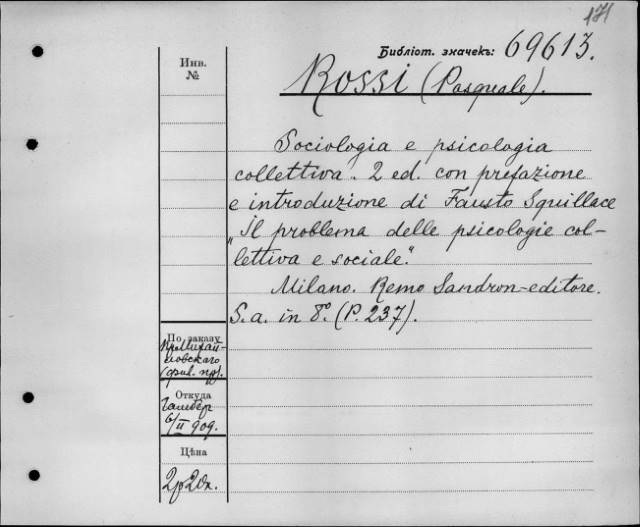 171
Библіот. значекъ: 69613.
Инв.
№
Rossi (Pasquale).
Sociologia e psicologia
collettiva. 2 ed. con prefazione
e introduzione di Fausto Squillace
„Il problema delle psicologie col-
lettiva e sociale."
Milano. Remo Sandron-editore.
S. a. in 8°. (P. 237).
По заказу
Откуда
6/II 909.
Цѣна
2р20к.